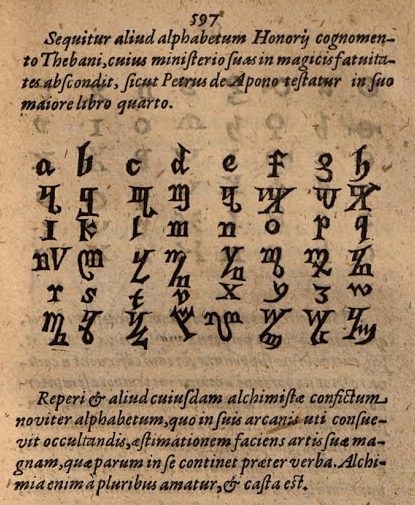 597
Sequitur aliud alphabetum Honorij cognomen-
to Thebani, cuius ministerio suas in magicis fatuita-
tes abscondit, sicut Petrus de Apono testatur in suo
maiore libro quarto.
a b c d e f g h
I k l m n o p q
r s t v x y z w
Reperi & aliud cuiusdam alchimistæ confictum
noviter alphabetum, quo in suis arcanis uti consue-
vit occultandis, æstimationem faciens artis suæ ma-
gnam, quæ parum in se continet præter verba. Alchi-
mia enim à pluribus amatur, & casta est.